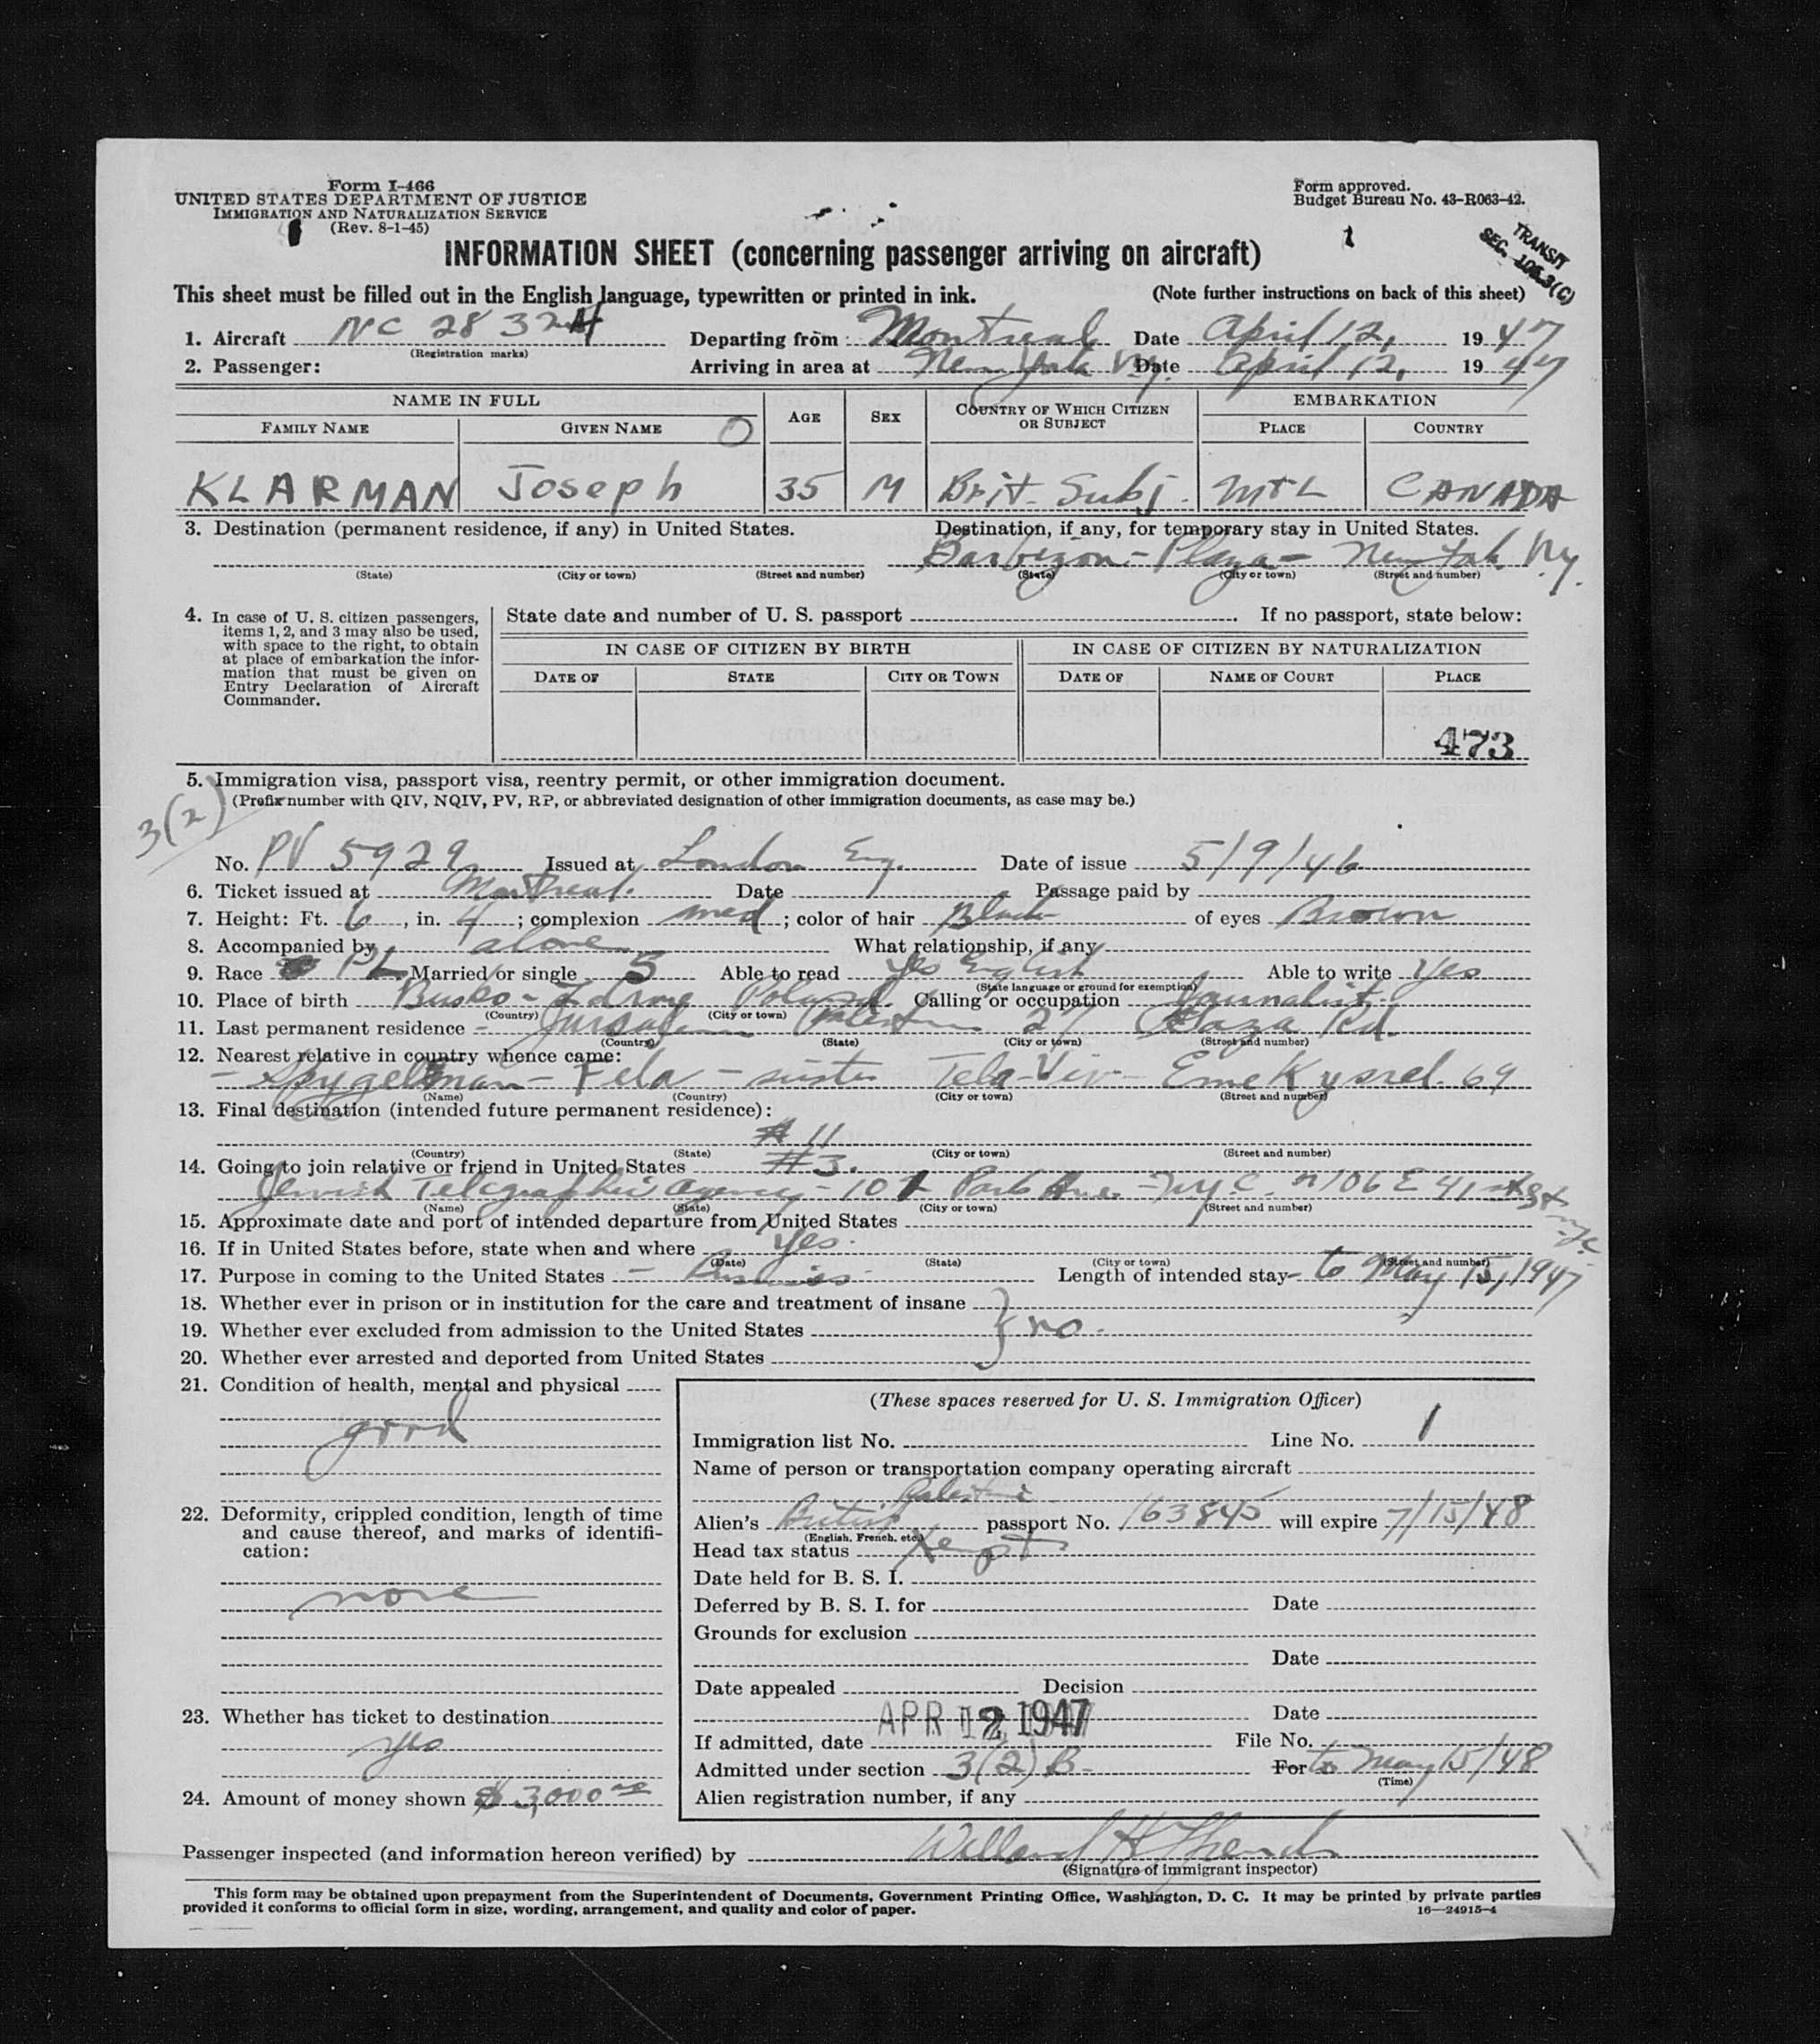 Form I-466
UNITED STATES DEPARTMENT OF JUSTICE
IMMIGRATION AND NATURALIZATION SERVICE
(Rev. 8-1-45)
Form approved.
Budget Bureau No. 43-R063-42.
TRANSIT
SEC. 106.3(C)
INFORMATION SHEET (concerning passenger arriving on aircraft)
This sheet must be filled out in the English language, typewritten or printed in ink. (Note further instructions on back of this sheet)
1. Aircraft NC 28324 Departing from Montreal Date April 12, 1947
(Registration marks)
2. Passenger: Arriving in area at New York N.Y. Date April 12, 1947
NAME IN FULL AGE SEX COUNTRY OF WHICH CITIZEN OR SUBJECT EMBARKATION
FAMILY NAME GIVEN NAME PLACE COUNTRY
KLARMAN Joseph 35 M Brit. Subj. MTL CANADA
3. Destination (permanent residence, if any) in United States. Destination, if any, for temporary stay in United States.
Barbizon-Plaza - New York N.Y.
(State) (City or town) (Street and number) (State) (City or town) (Street and number)
4. In case of U. S. citizen passengers, items 1, 2, and 3 may also be used, with space to the right, to obtain at place of embarkation the information that must be given on Entry Declaration of Aircraft Commander.
State date and number of U. S. passport If no passport, state below:
IN CASE OF CITIZEN BY BIRTH IN CASE OF CITIZEN BY NATURALIZATION
DATE OF STATE CITY OR TOWN DATE OF NAME OF COURT PLACE
473
5. Immigration visa, passport visa, reentry permit, or other immigration document.
(Prefix number with QIV, NQIV, PV, RP, or abbreviated designation of other immigration documents, as case may be.)
3(2)
No. PV 5929 Issued at London Eng. Date of issue 5/9/46
6. Ticket issued at Montreal. Date Passage paid by
7. Height: Ft. 6, in. 4; complexion med; color of hair Black of eyes Brown
8. Accompanied by alone What relationship, if any
9. Race PL Married or single S Able to read Yes English Able to write Yes
(State language or ground for exemption)
10. Place of birth Busko-Zdroj Poland. Calling or occupation Journalist.
(Country) (City or town)
11. Last permanent residence - Jerusalem Palestine 27 Gaza Rd.
(Country) (State) (City or town) (Street and number)
12. Nearest relative in country whence came:
- Spygelman - Fela - sister Tela-Viv- Emek Ysrel. 69
(Name) (Country) (City or town) (Street and number)
13. Final destination (intended future permanent residence):
# 11
(Country) (State) (City or town) (Street and number)
14. Going to join relative or friend in United States #3.
Jewish Telegraphic Agency - 101 Park Ave. - N.Y.C. 106 E 41 st St N.Y.C.
(Name) (State) (City or town) (Street and number)
15. Approximate date and port of intended departure from United States
16. If in United States before, state when and where Yes.
(Date) (State) (City or town) (Street and number)
17. Purpose in coming to the United States - Business. Length of intended stay- to May 15, 1947
18. Whether ever in prison or in institution for the care and treatment of insane
19. Whether ever excluded from admission to the United States } no.
20. Whether ever arrested and deported from United States
21. Condition of health, mental and physical
good
22. Deformity, crippled condition, length of time and cause thereof, and marks of identification:
none
23. Whether has ticket to destination
yes
24. Amount of money shown $3,000 00
(These spaces reserved for U. S. Immigration Officer)
Immigration list No. Line No. 1
Name of person or transportation company operating aircraft
Palestine
Alien's British passport No. 163845 will expire 7/15/48
(English, French, etc.)
Head tax status Xempt
Date held for B. S. I.
Deferred by B. S. I. for Date
Grounds for exclusion
Date
Date appealed Decision
Date
APR 12 1947
If admitted, date File No.
Admitted under section 3(2)B- For to May 15/48
(Time)
Alien registration number, if any
Passenger inspected (and information hereon verified) by Willard H
(Signature of immigrant inspector)
This form may be obtained upon prepayment from the Superintendent of Documents, Government Printing Office, Washington, D. C. It may be printed by private parties
provided it conforms to official form in size, wording, arrangement, and quality and color of paper. 16—24915-4